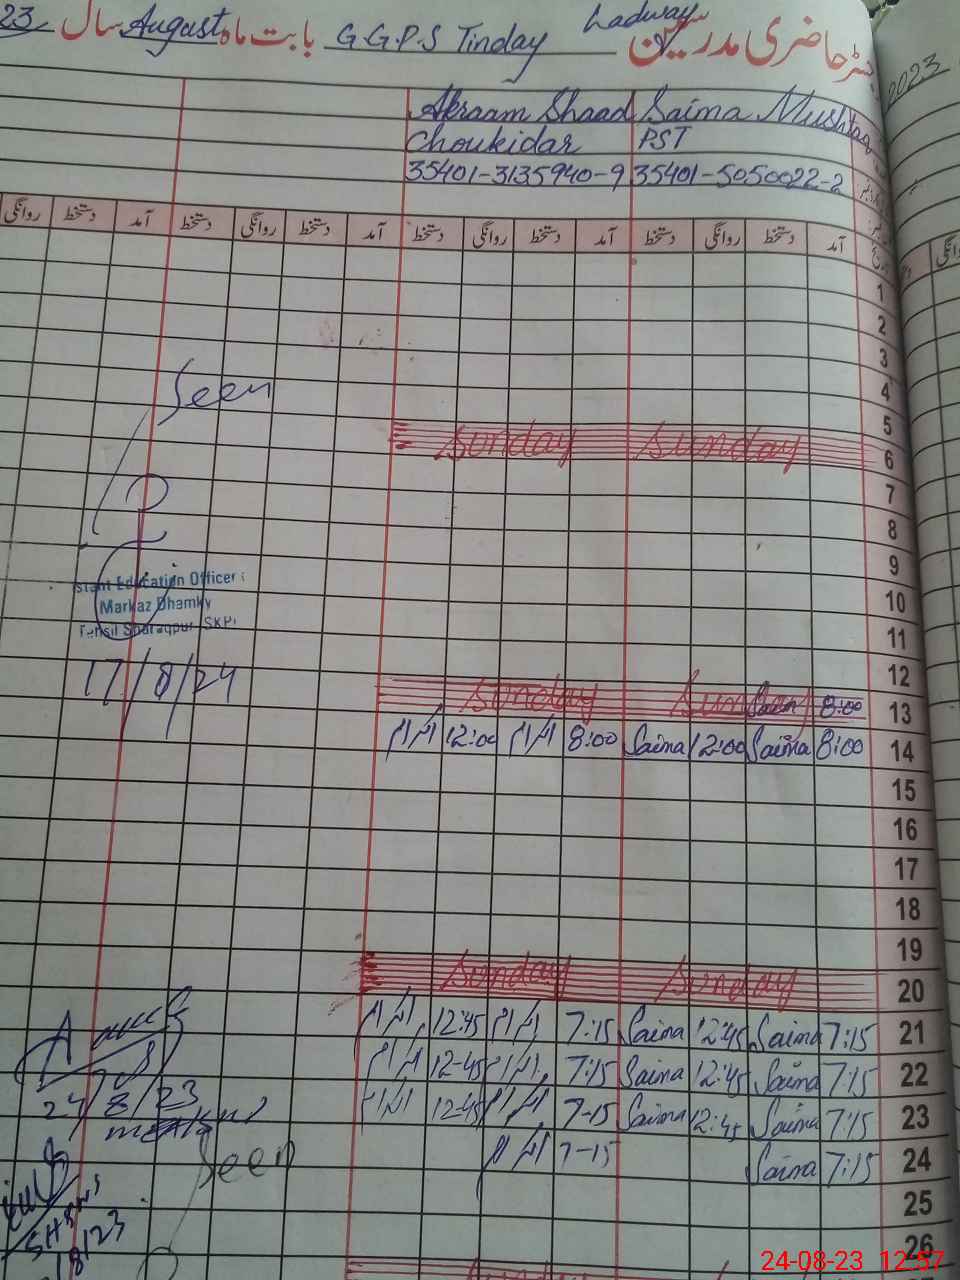 رجسٹر حاضری مدرسین G.G.P.S Tinday Ladway بابت ماہ August سال 23
2023
Akraam Shaad Saima Mushtaq
Choukidar PST
35401-3135940-9 35401-5050022-2
آمد دستخط روانگی دستخط آمد دستخط روانگی دستخط آمد دستخط روانگی دستخط آمد دستخط روانگی
1
2
3
4
5
Sunday Sunday 6
7
8
9
10
11
12
Sunday Sunday 8:00 13
12:00 8:00 Saima 12:00 Saima 8:00 14
15
16
17
18
19
Sunday Sunday 20
12:45 7:15 Saima 12:45 Saima 7:15 21
12-45 7:15 Saima 12:45 Saima 7:15 22
12-45 7-15 Saima 12:45 Saima 7:15 23
7-15 Saima 7:15 24
25
26
Seen
Education Officer
Markaz Dhamky
Tehsil Sharaqpur SKP
17/8/24
24/8/23
Seen
8/23
24-08-23 12:57